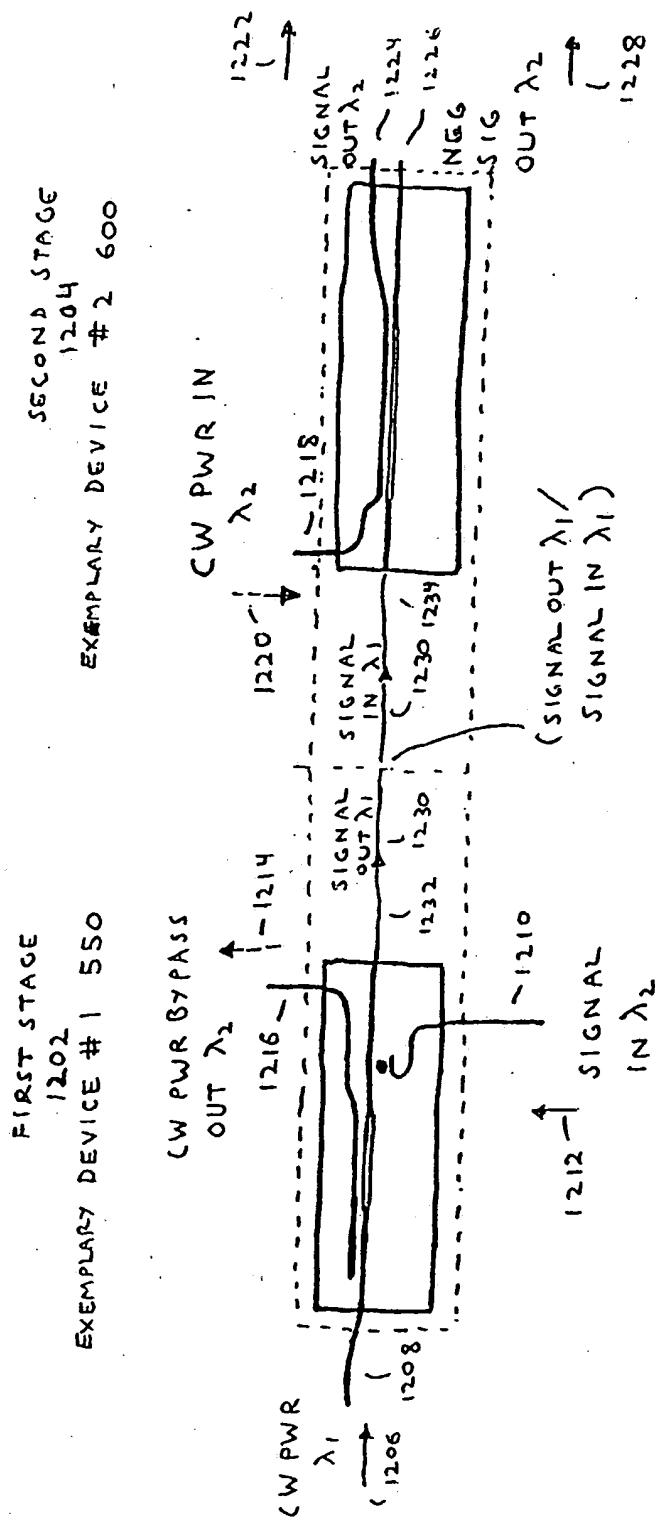 FIRST STAGE
1202
EXEMPLARY DEVICE #1 550
SECOND STAGE
1204
EXEMPLARY DEVICE #2 600
CW PWR
λ1
1206
1208
CW PWR BYPASS
OUT λ2
1214
1216
1210
1212
SIGNAL
IN λ2
SIGNAL
OUT λ1
1230
1232
SIGNAL
IN λ1
1230
1234
(SIGNAL OUT λ1/
SIGNAL IN λ1)
CW PWR IN
λ2
1218
1220
1222
SIGNAL
OUT λ2
1224
1226
NEG
SIG
OUT λ2
1228